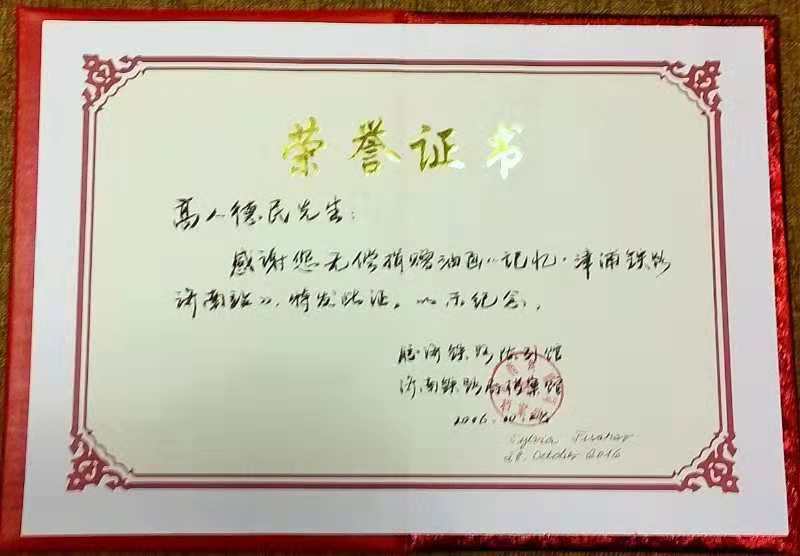 荣誉证书
高人德民先生:
感谢您无偿捐赠油画《记忆·津浦铁路
济南站》,特发此证,以示纪念。
胶济铁路陈列馆
济南铁路局档案馆
2016.10
Sylvia
28. October 2016